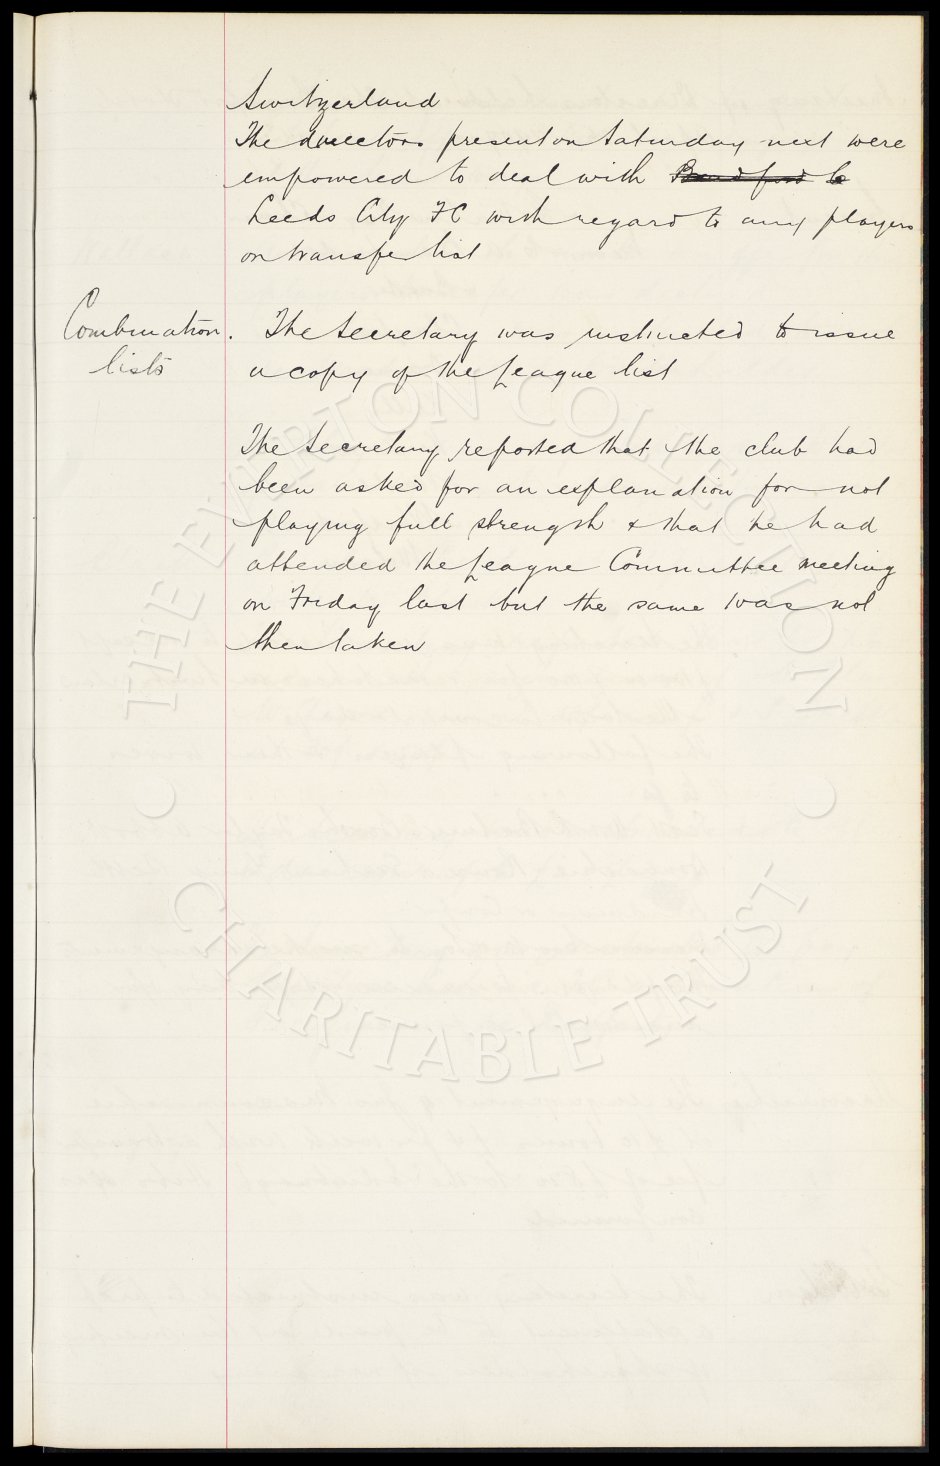 Switzerland
The directors present on Saturday next were
empowered to deal with Bradford C
Leeds City FC with regard to any players
on transfer list
Combination. The Secretary was instructed to issue
lists a copy of the League list
The Secretary reported that the club had
been asked for an explanation for not
playing full strength & that he had
attended the League Committee meeting
on Friday last but the same was not
then taken
THE EVERTON COLLECTION
CHARITABLE TRUST